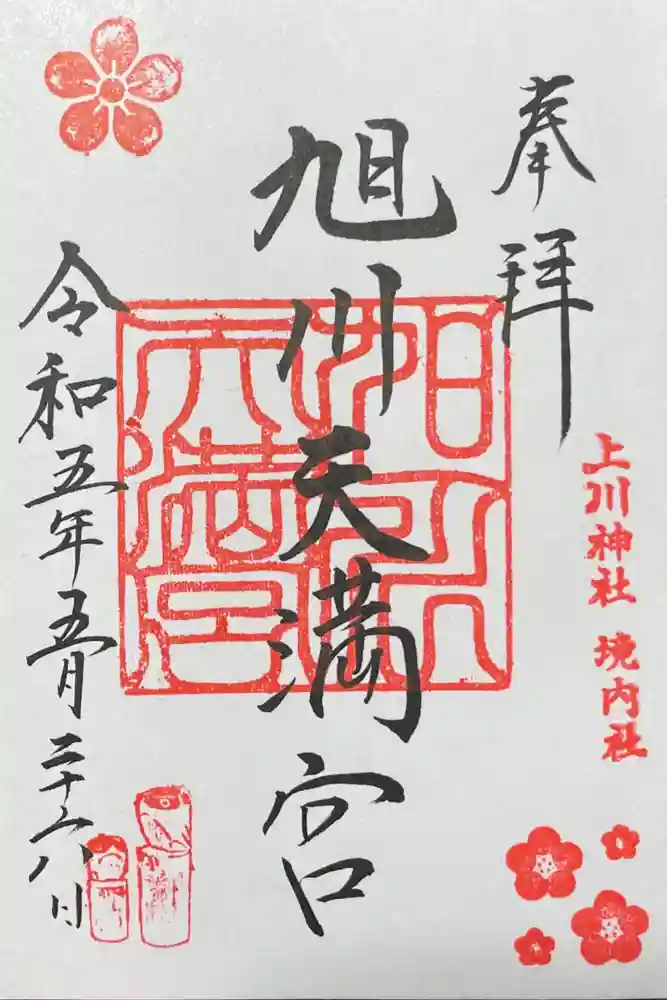 奉拝
上川神社 境内社
旭川天満宮
令和五年五月二十六日